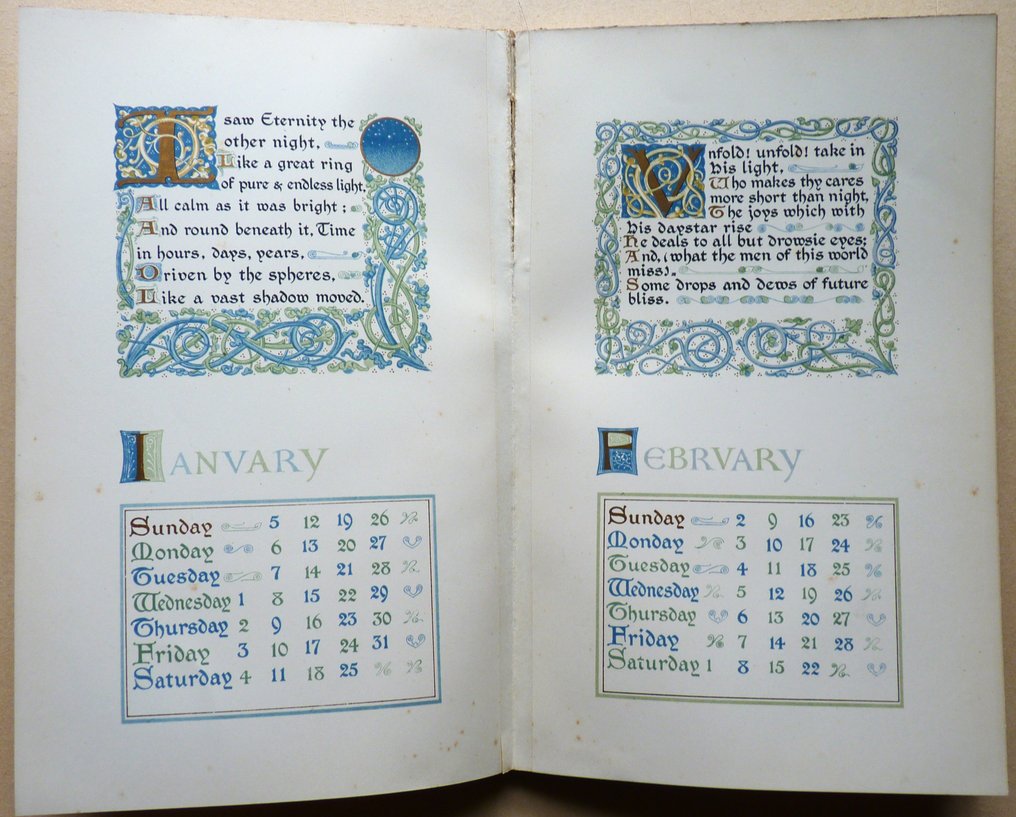 I saw Eternity the
other night,
Like a great ring
of pure & endless light,
All calm as it was bright;
And round beneath it, Time
in hours, days, years,
Driven by the spheres,
Like a vast shadow moved.
IANVARY
Sunday 5 12 19 26
Monday 6 13 20 27
Tuesday 7 14 21 28
Wednesday 1 8 15 22 29
Thursday 2 9 16 23 30
Friday 3 10 17 24 31
Saturday 4 11 18 25
Vnfold! unfold! take in
his light,
Who makes thy cares
more short than night.
The joys which with
his daystar rise
he deals to all but drowsie eyes;
And, (what the men of this world
miss).
Some drops and dews of future
bliss.
FEBRVARY
Sunday 2 9 16 23
Monday 3 10 17 24
Tuesday 4 11 18 25
Wednesday 5 12 19 26
Thursday 6 13 20 27
Friday 7 14 21 28
Saturday 1 8 15 22